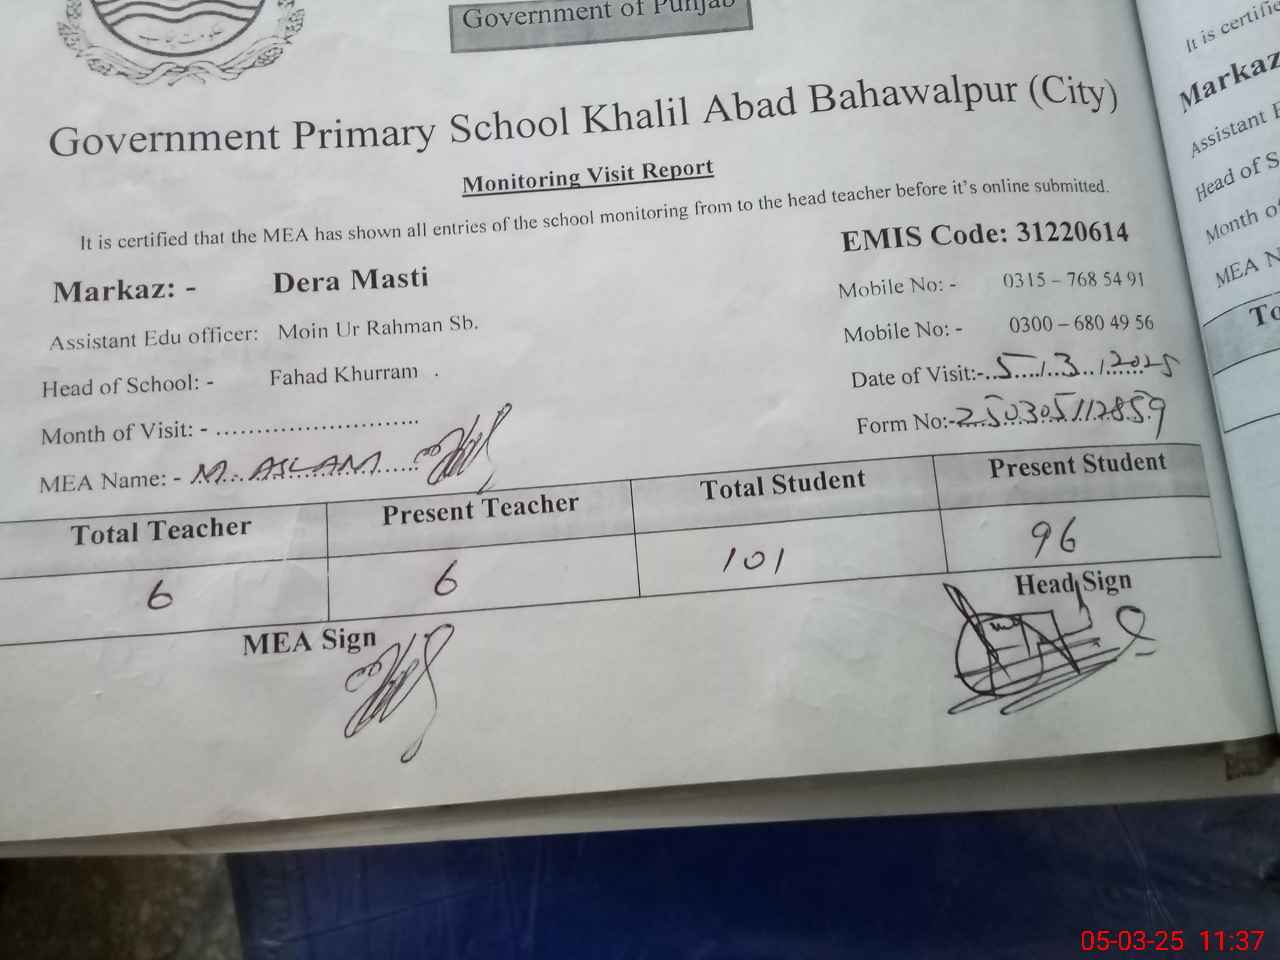 حکومت پنجاب
Government of Punjab
Government Primary School Khalil Abad Bahawalpur (City)
Monitoring Visit Report
It is certified that the MEA has shown all entries of the school monitoring from to the head teacher before it's online submitted.
Markaz: - Dera Masti EMIS Code: 31220614
Assistant Edu officer: Moin Ur Rahman Sb. Mobile No: - 0315 – 768 54 91
Head of School: - Fahad Khurram . Mobile No: - 0300 – 680 49 56
Month of Visit: - .............................. Date of Visit:- 5/3/2025
MEA Name: - M. ASLAM Form No:- 250305112859
Total Teacher Present Teacher Total Student Present Student
6 6 101 96
MEA Sign Head Sign
It is certifie
Markaz
Assistant E
Head of S
Month of
MEA N
To
05-03-25 11:37